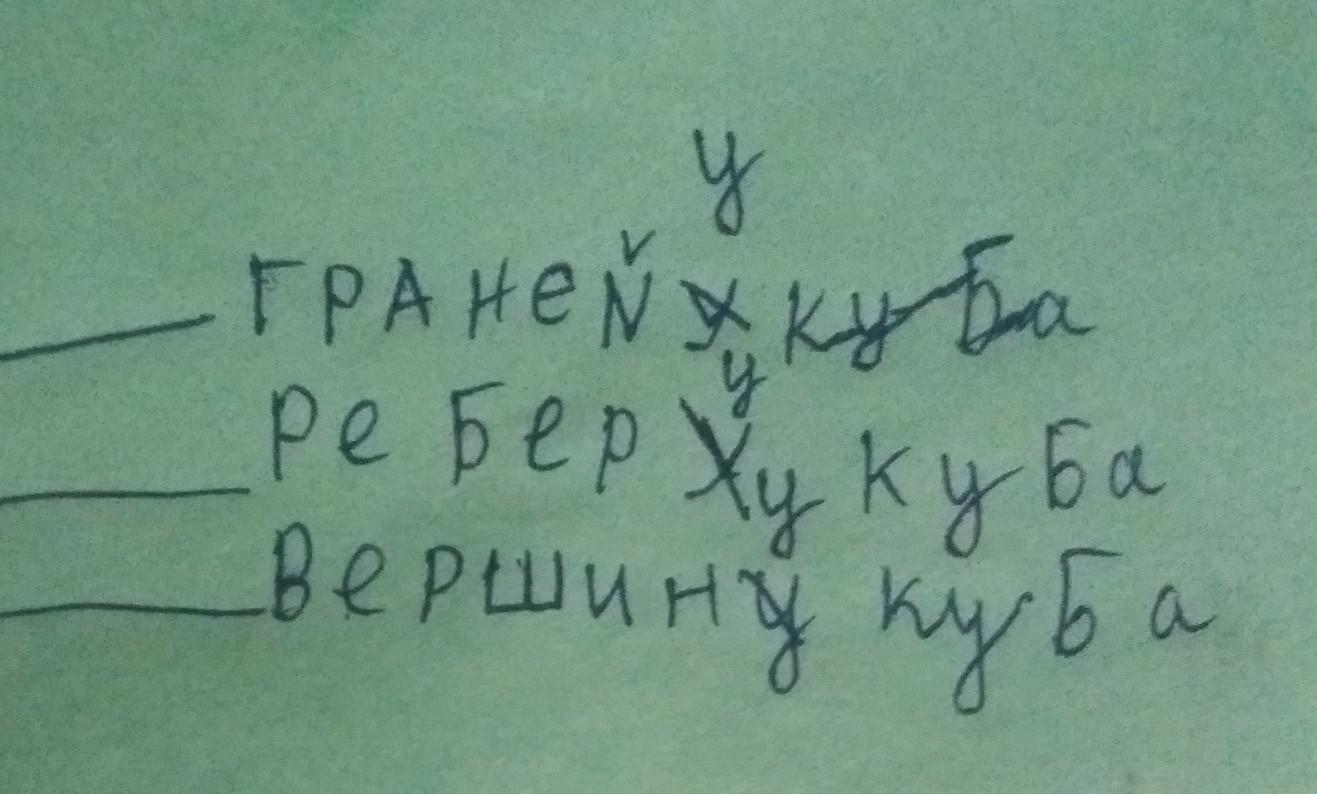 У
ГРАНЕЙ У КУБА
РЕБЕР У КУБА
ВЕРШИН У КУБА